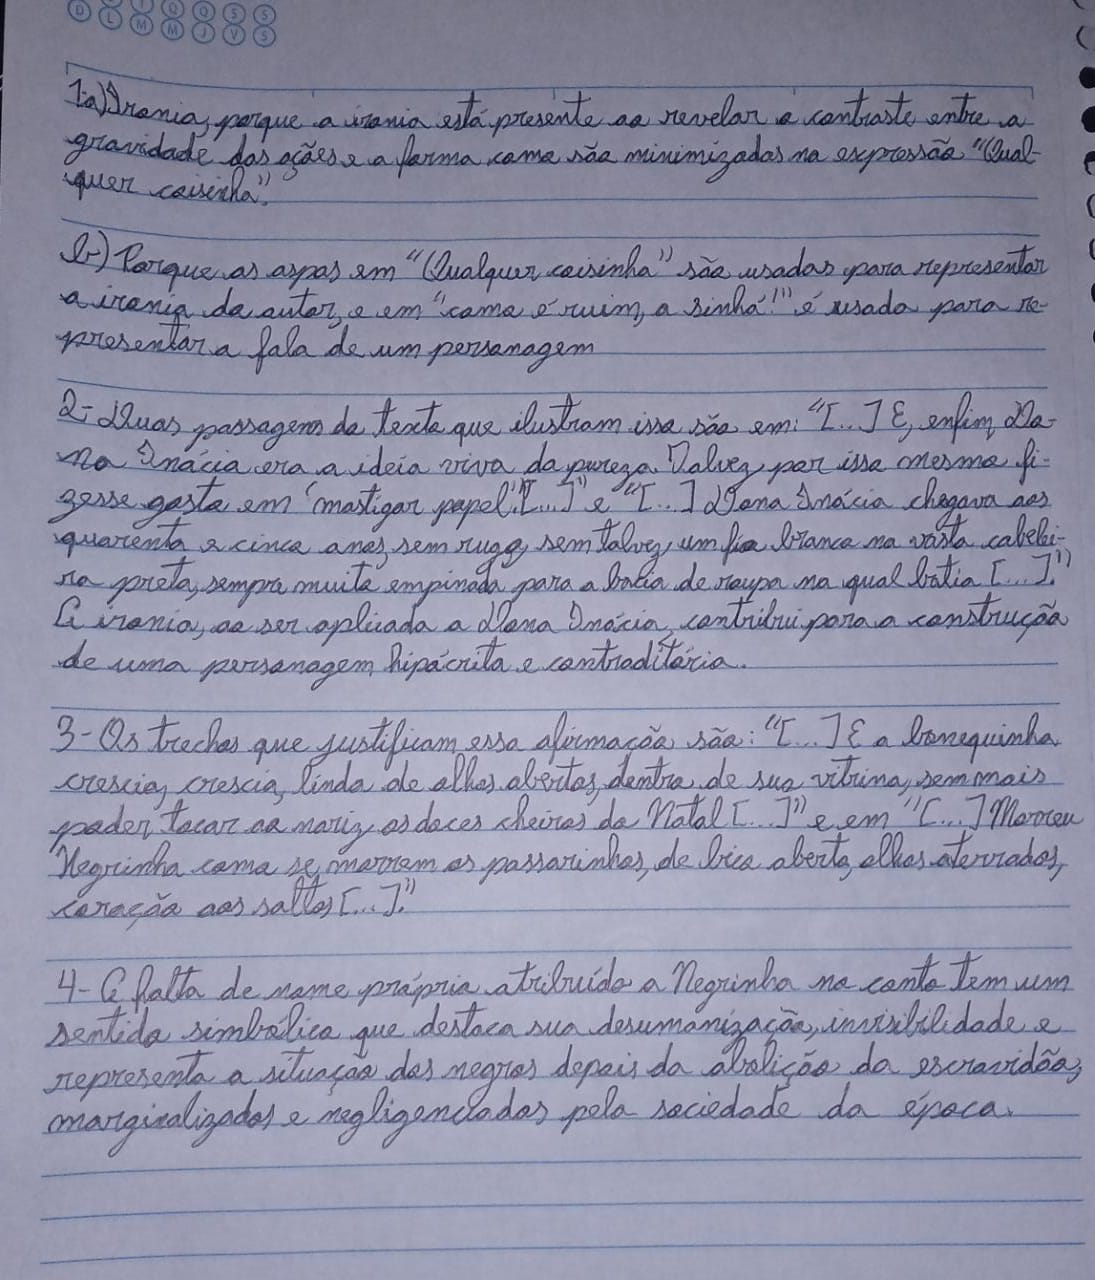 D L T M Q M Q J S V S S
1-a) Ironia, porque a ironia está presente ao revelar o contraste entre a
gravidade das ações e a forma como são minimizadas na expressão "Qual-
quer coisinha".
b-) Porque as aspas em "Qualquer coisinha" são usadas para representar
a ironia do autor, e em "como é ruim, a sinhá!" é usado para re-
presentar a fala de um personagem
2- Duas passagens do texto que ilustram isso são em: "[...] E, enfim, Do-
na Inácia era a ideia viva da pureza. Talvez, por isso mesmo fi-
zesse gosto em 'mastigar papel'. [...]" e "[...] Dona Inácia chegava aos
quarenta e cinco anos, sem ruga, sem talvez, um fio branco na vasta cabelei-
ra preta, sempre muito empinada para a bacia de roupa na qual batia [...]."
A ironia, ao ser aplicada a Dona Inácia, contribui para a construção
de uma personagem hipócrita e contraditória.
3- Os trechos que justificam essa afirmação são: "[...] E a bonequinha
crescia, crescia, linda de olhos abertos, dentro de sua vitrina, sem mais
poder tocar ao nariz, os doces cheiros do Natal [...]" e em "[...] Morreu
Negrinha como se morrem os passarinhos, de bico aberto, olhos aterrados,
coração aos saltos [...]."
4- A falta de nome próprio atribuído a Negrinha no conto tem um
sentido simbólico que destaca sua desumanização, invisibilidade e
representa a situação dos negros depois da abolição da escravidão,
marginalizados e negligenciados pela sociedade da época.